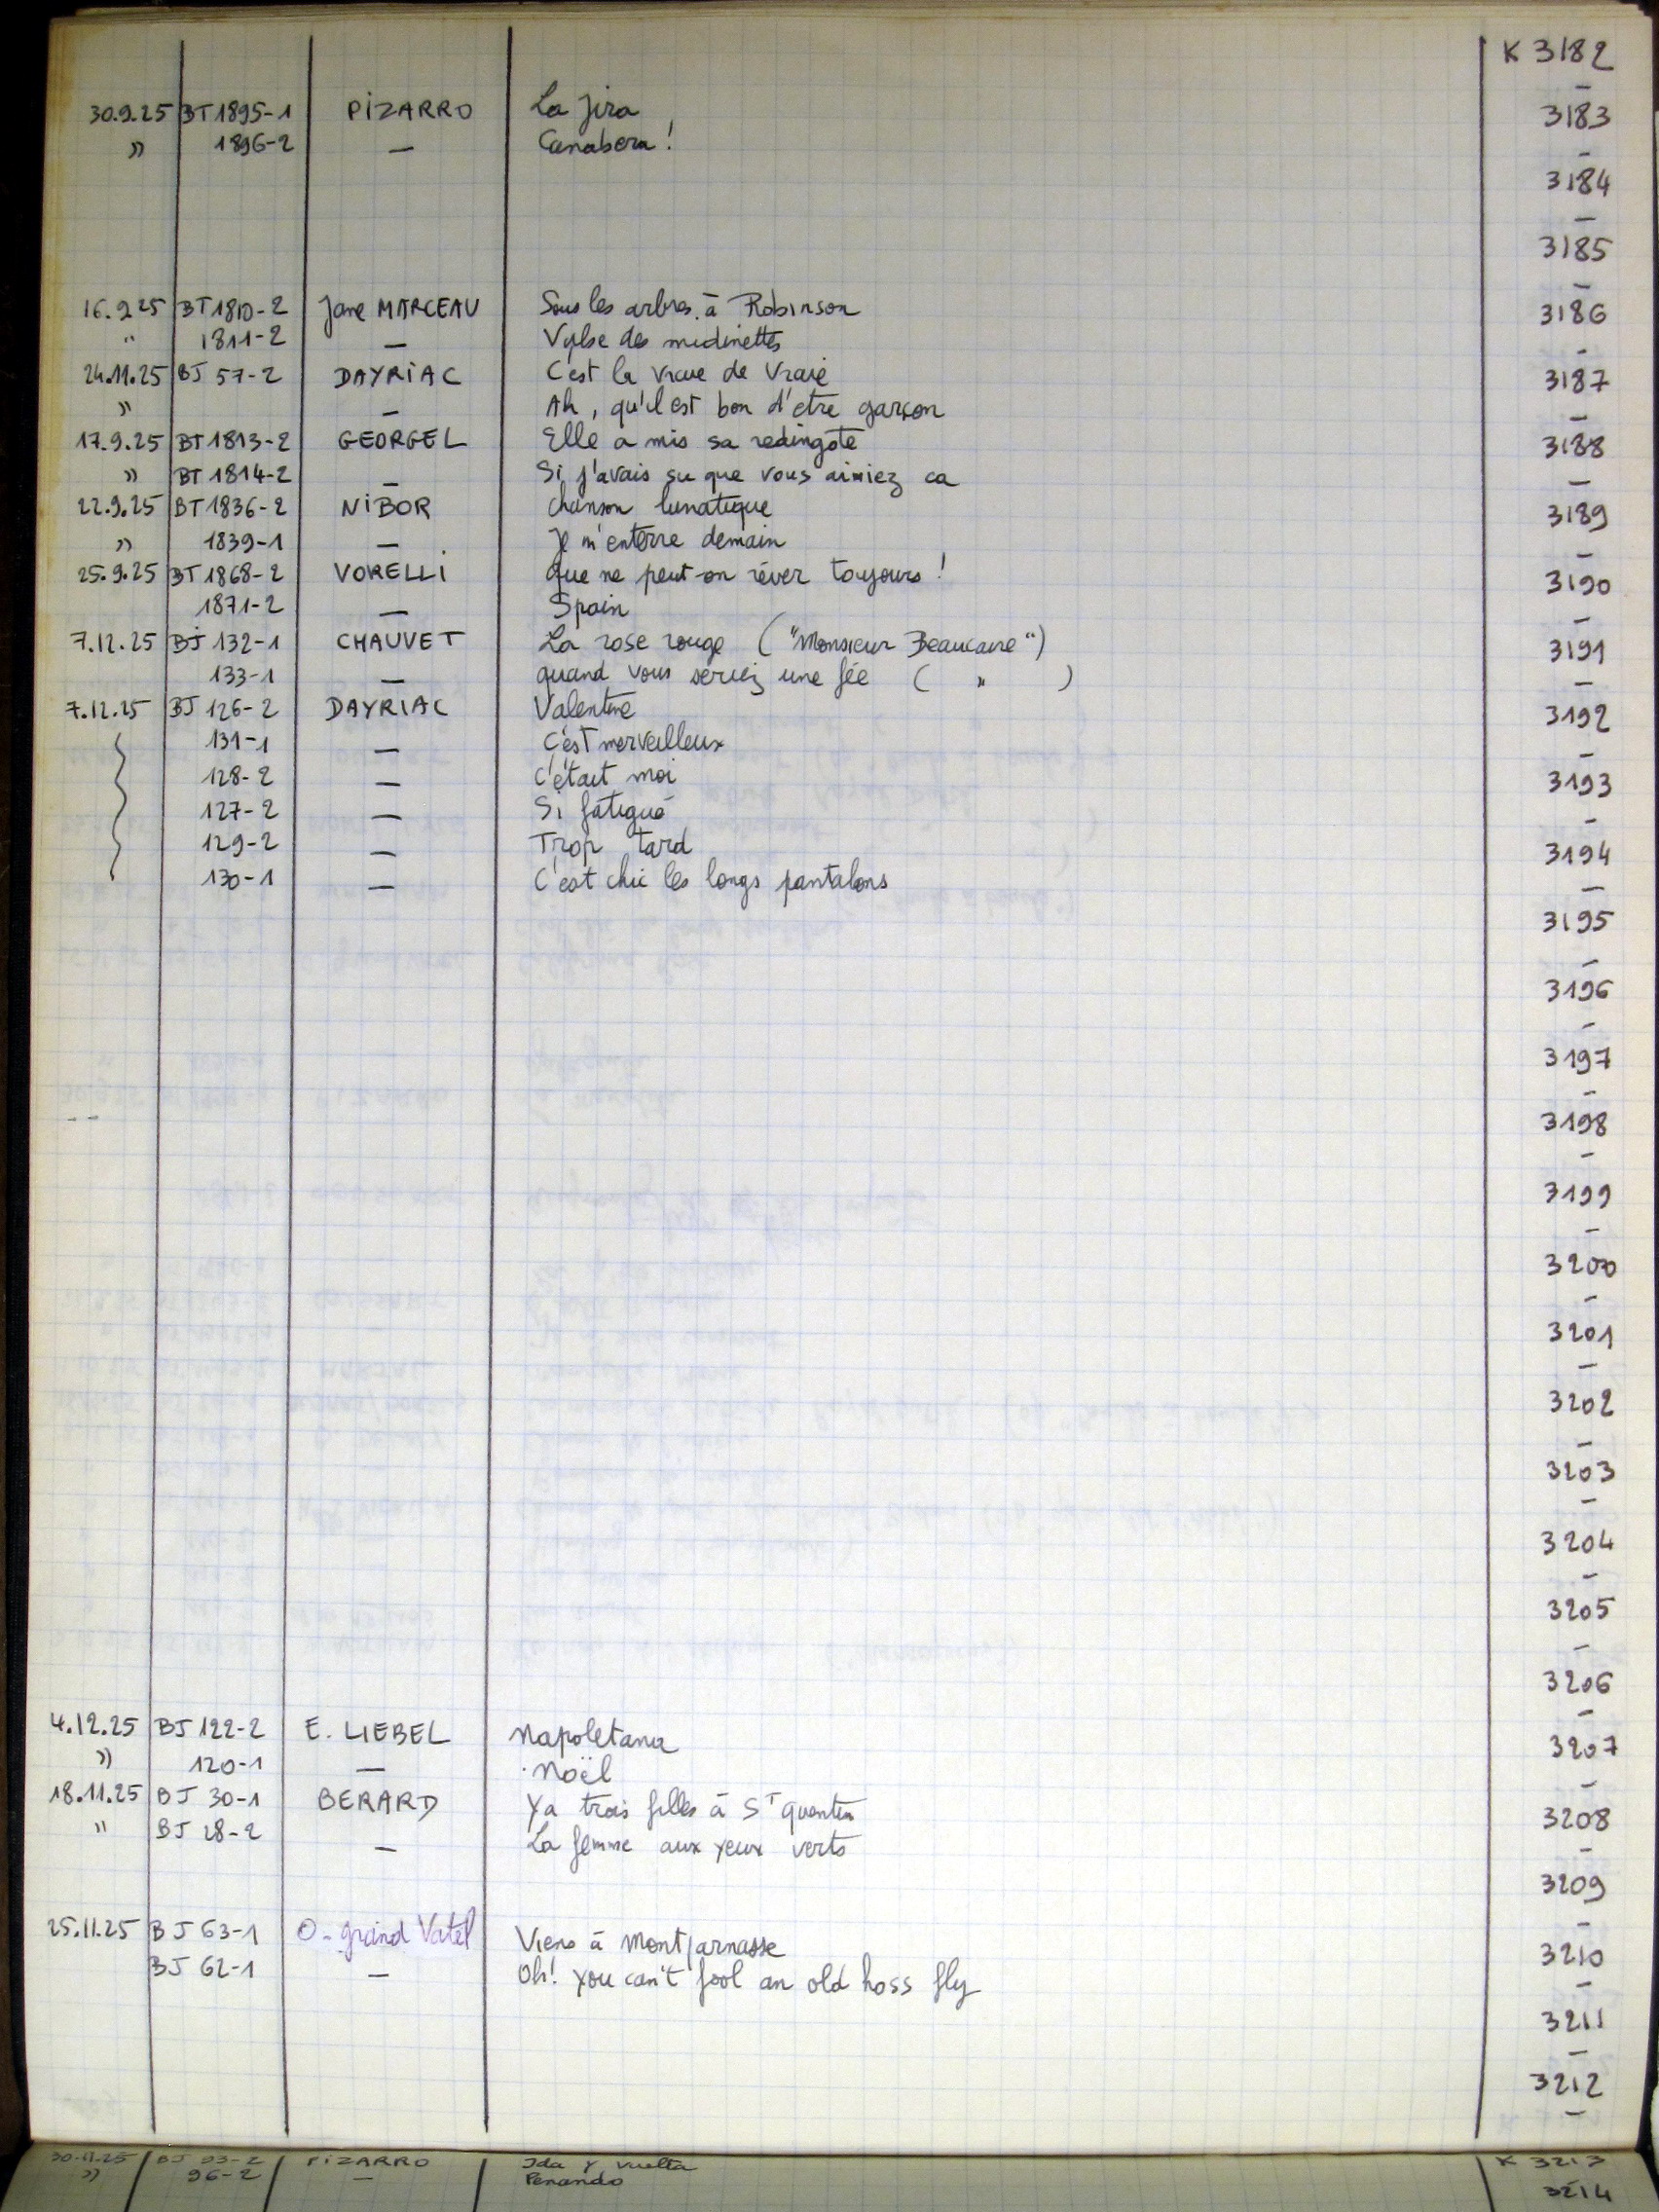 K 3182
—
30.9.25 BT 1895-1 PIZARRO La Jira 3183
» 1896-2 — Canabera! —
3184
—
3185
—
16.9.25 BT 1810-2 Jane MARCEAU Sous les arbres à Robinson 3186
" 1811-2 — Valse des midinettes —
24.11.25 BJ 57-2 DAYRIAC C'est la vraie de vraie 3187
» — Ah, qu'il est bon d'etre garçon —
17.9.25 BT 1813-2 GEORGEL Elle a mis sa redingote 3188
» BT 1814-2 — Si j'avais su que vous aimiez ca —
22.9.25 BT 1836-2 NIBOR Chanson lunatique 3189
» 1839-1 — Je m'enterre demain —
25.9.25 BT 1868-2 VORELLI Que ne peut-on rêver toujours! 3190
1871-2 — Spain —
7.12.25 BJ 132-1 CHAUVET La rose rouge ("Monsieur Beaucaire") 3191
133-1 — quand vous seriez une fée ( " ) —
7.12.25 BJ 126-2 DAYRIAC Valentine 3192
131-1 — C'est merveilleux —
128-2 — C'était moi 3193
127-2 — Si fatigué —
129-2 — Trop tard 3194
130-1 — C'est chic les longs pantalons —
3195
—
3196
—
3197
—
3198
—
3199
—
3200
—
3201
—
3202
—
3203
—
3204
—
3205
—
3206
—
4.12.25 BJ 122-2 E. LIEBEL Napoletana 3207
» 120-1 — Noël —
18.11.25 BJ 30-1 BERARD Ya trois filles à St Quentin 3208
" BJ 28-2 — La femme aux yeux verts —
3209
—
25.11.25 BJ 63-1 O- grand Vatel Viens à Montparnasse 3210
BJ 62-1 — Oh! You can't fool an old hoss fly —
3211
—
3212
—
30.11.25 BJ 93-2 PIZARRO Ida y vuelta K 3213
» 96-2 — Penando 3214